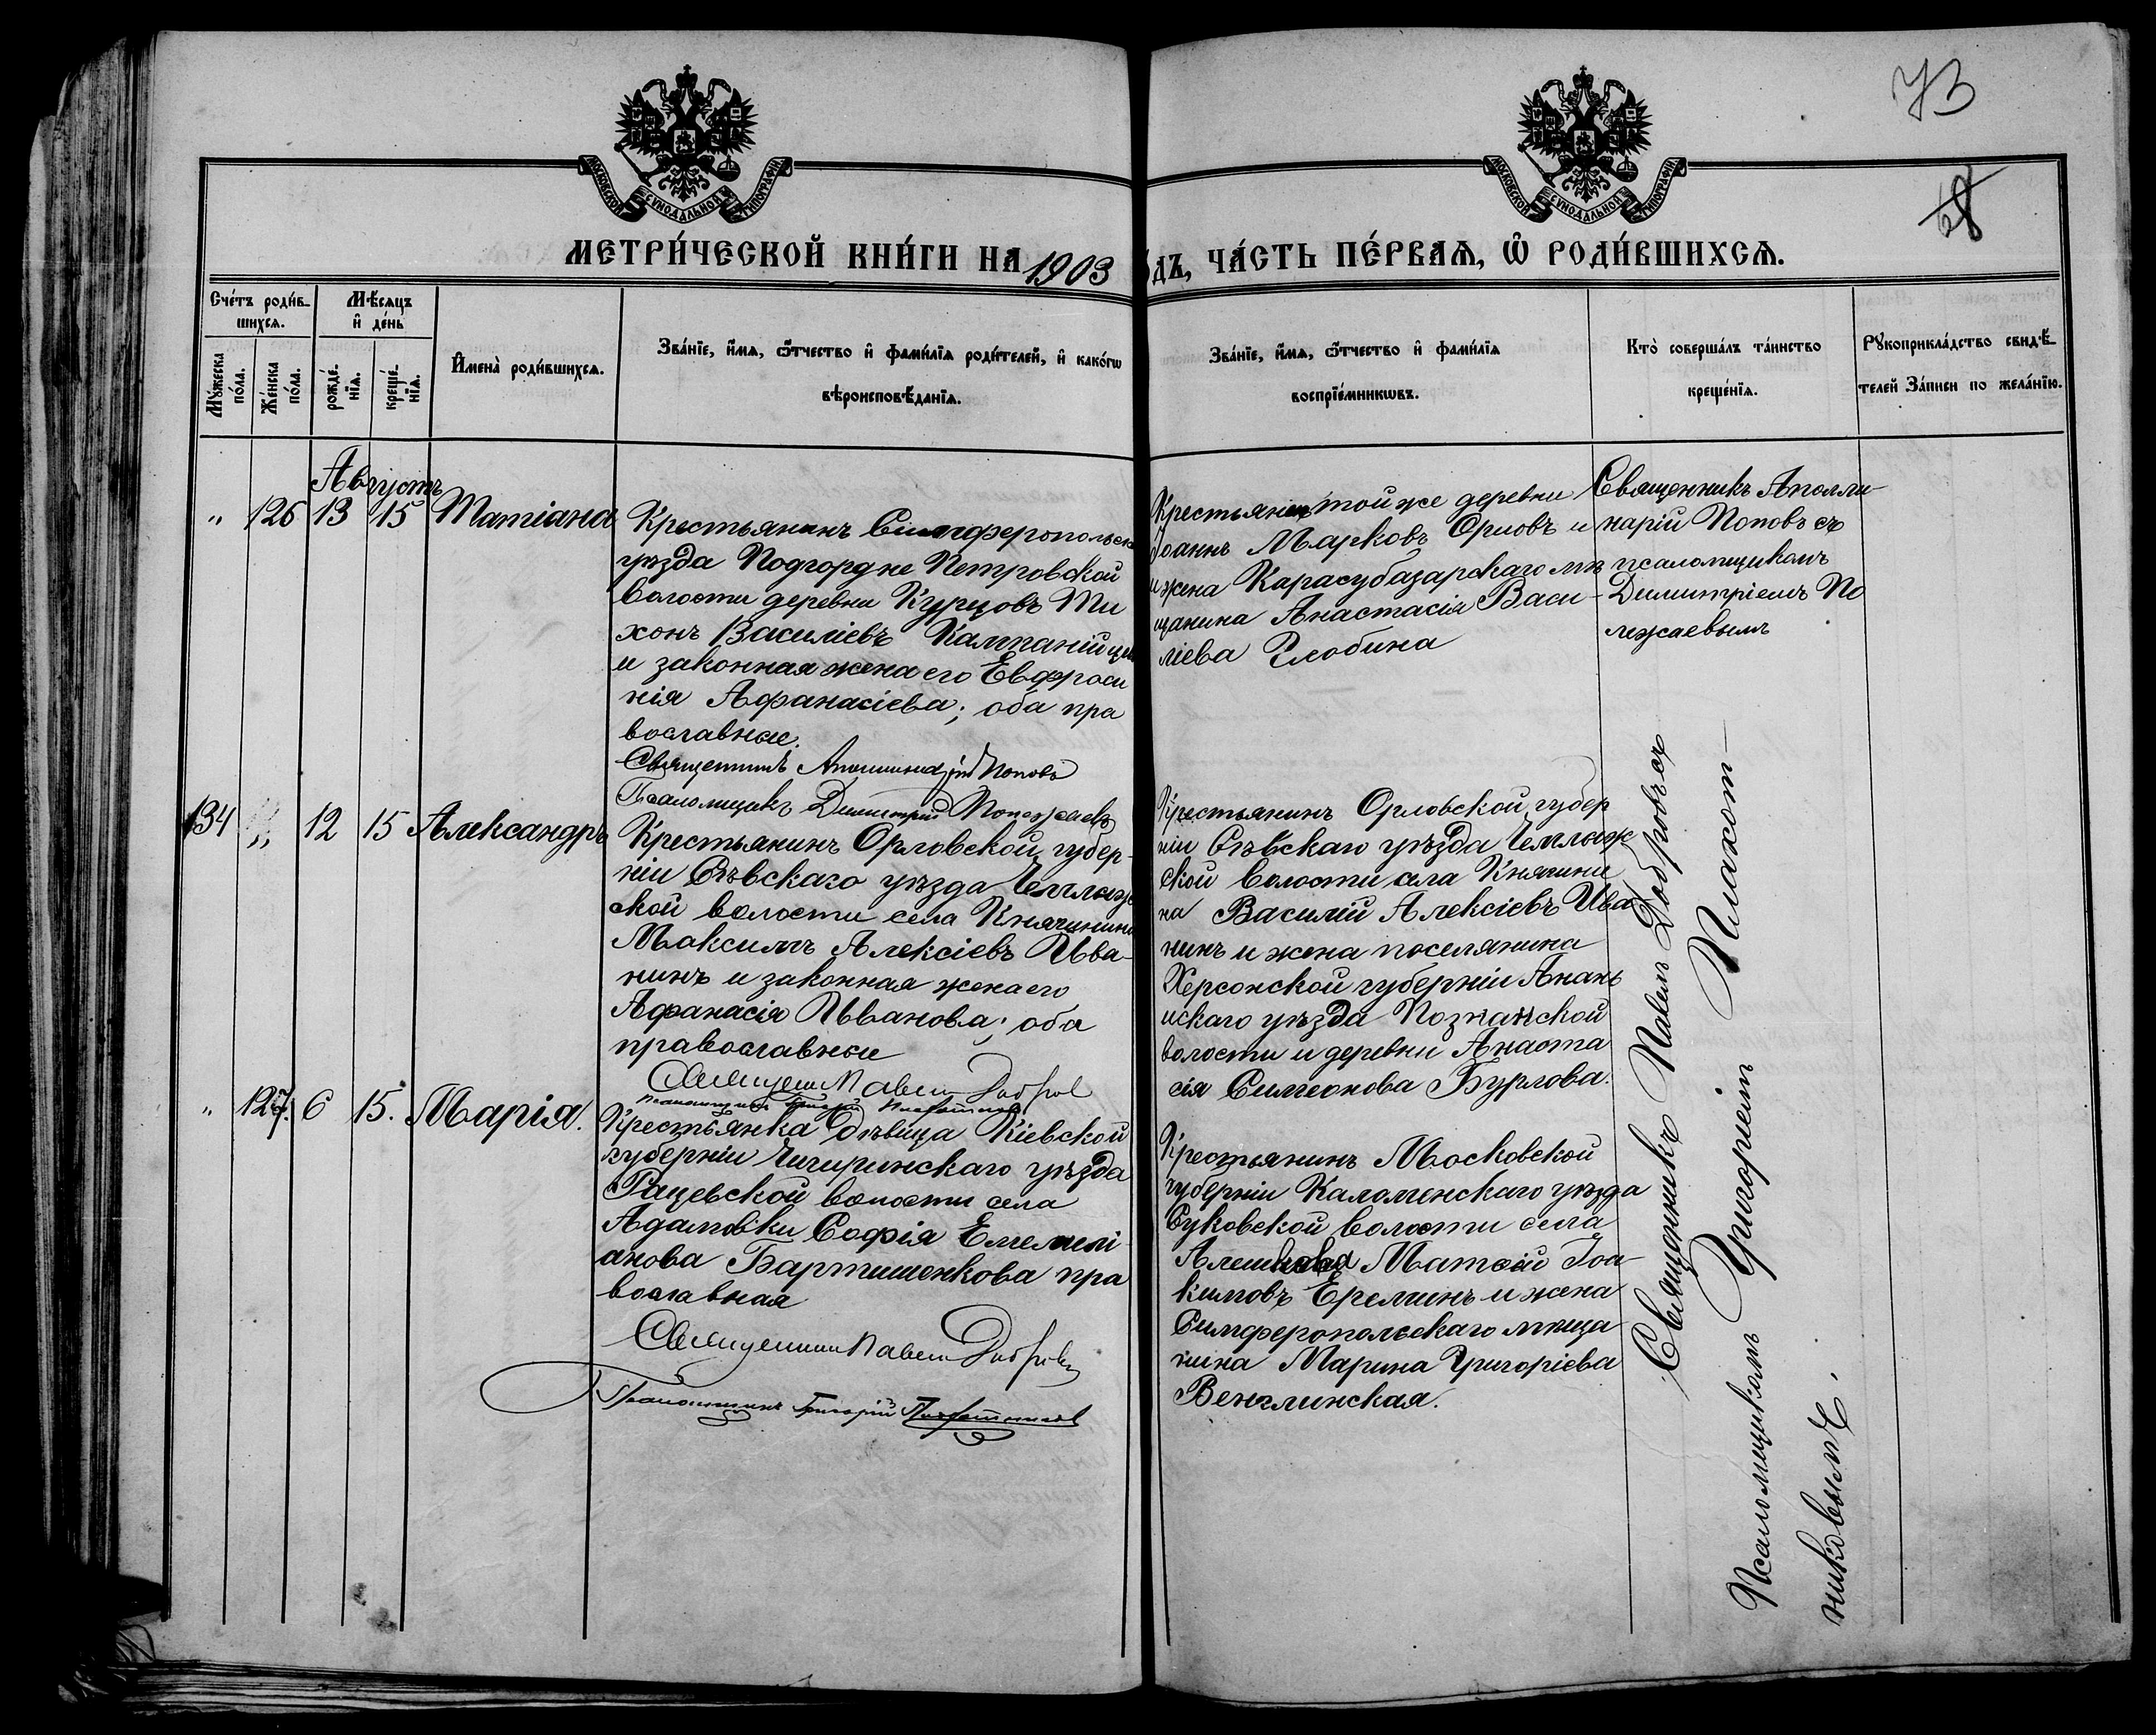 73
68
МОСКОВСКОЙ СУНОДАЛЬНОЙ ТИПОГРАФІИ
МОСКОВСКОЙ СУНОДАЛЬНОЙ ТИПОГРАФІИ
МЕТРИ́ЧЕСКОЙ КНИ́ГИ НА 1903
ДЪ, ЧА́СТЬ ПЕ́РВАѦ, Ѡ҆ РОДИ́ВШИХСѦ.
Сче́тъ роди́в-
шихсѧ.
Мѣ́сѧцъ
и҆ де́нь
Мꙋ́жеска
по́ла.
Же́нска
по́ла.
рожде́-
нїѧ.
креще́-
нїѧ.
И҆мена̀ роди́вшихсѧ.
Зва́нїе, и҆́мѧ, ѻ҆́тчество и҆ фами́лїѧ роди́телей, и҆ како́гѡ
вѣроисповѣ́данїѧ.
Зва́нїе, и҆́мѧ, ѻ҆́тчество и҆ фами́лїѧ
воспрїе́мникѡвъ.
Кто̀ соверша́лъ та́инство
креще́нїѧ.
Рꙋкоприкла́дство свидѣ́-
телей За́писи по жела́нїю.
Августъ
" 126 13 15 Татіана
Крестьянинъ Симферопольск
уѣзда Подгордне Петровской
волости деревни Курцовъ Ти
хонъ Василіевъ
и законная жена его Евфроси
нія Афанасіева; оба пра
вославные.
Священникъ Аполлинарій Поповъ
Псаломщикъ Димитрій Полежаевъ
Крестьянинъ той же деревни
Іоаннъ Марковъ Орловъ и
и жена Карасубазарскаго мѣ
щанина Анастасія Васи-
ліева Злобина
Священникъ Аполли-
нарій Поповъ съ
псаломщикомъ
Димитріемъ По
лежаевымъ
134 " 12 15 Александръ
Крестьянинъ Орловской губер-
ніи Сѣвскаго уѣзда
ской волости села Княгинина
Максимъ Алексіевъ Ива-
нинъ и законная жена его
Афанасія Иванова; оба
православные
Священникъ Павелъ Добровъ
Псаломщикъ Григорій Плахотниковъ
Крестьянинъ Орловской губер
ніи Сѣвскаго уѣзда
ской волости села Княгини
на Василій Алексіевъ Ива
нинъ и жена поселянина
Херсонской губерніи Анань
искаго уѣзда Познанской
волости и деревни Анаста
сія Симеонова Бурлова.
" 127. 6 15. Марія.
Крестьянка дѣвица Кіевской
губерніи Чигиринскаго уѣзда
Рацевской волости села
Адамовки Софія Емелиі
анова Бартишенкова пра
вославная
Священникъ Павелъ Добровъ
Псаломщикъ Григорій Плахотниковъ
Крестьянинъ Московской
губерніи Каломенскаго уѣзда
Суковской волости села
Алешкова Матѳій Іоа-
кимовъ Ереминъ и жена
Симферопольскаго мѣща
нина Марина Григоріева
Венглинская.
Священникъ Павелъ Добровъ съ
Псаломщикомъ Григоріемъ Плахот-
никовымъ.